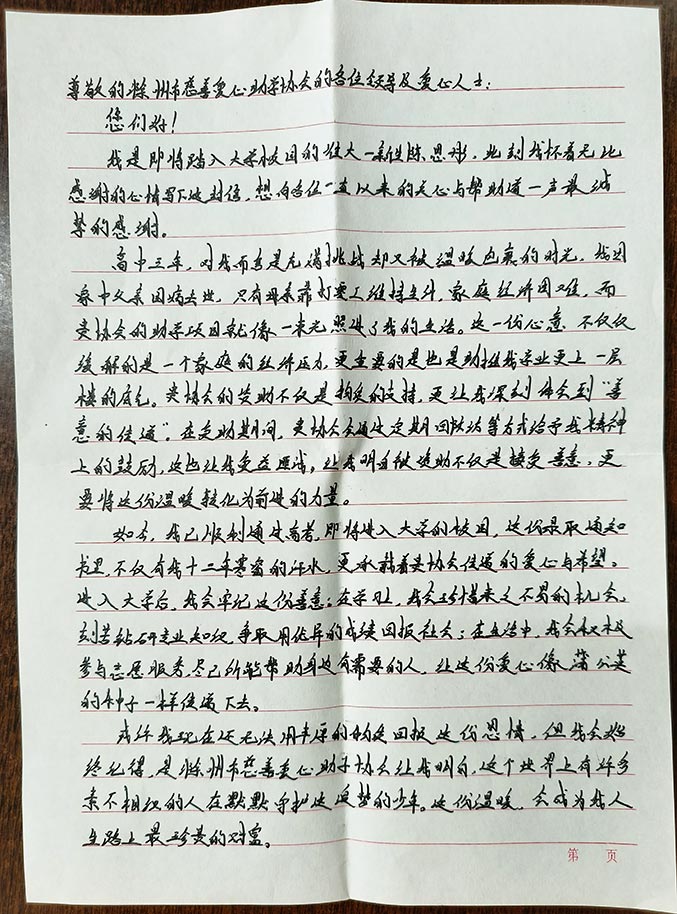 尊敬的滁州市慈善爱心助学协会的各位领导及爱心人士：
您们好！
我是即将踏入大学校园的准大一新生陈思彤，此刻我怀着无比
感谢的心情写下这封信，想向各位一直以来的关心与帮助道一声最诚
挚的感谢。
高中三年，对我而言是充满挑战却又被温暖包裹的时光，我因
春中父亲因病去世，只有母亲靠打零工维持生计，家庭经济困难，而
贵协会的助学项目就像一束光照进了我的生活。这一份心意，不仅仅
缓解的是一个家庭的经济压力，更重要的是也是助推我学业更上一层
楼的底气。贵协会的资助不仅是物质的支持，更让我深刻体会到“善
意的传递”。在受助期间，贵协会会通过定期回访等方式给予我精神
上的鼓励，这也让我受益匪浅，让我明白被资助不仅是接受善意，更
要将这份温暖转化为前进的力量。
如今，我已顺利通过高考，即将进入大学的校园，这份录取通知
书里，不仅有我十二年寒窗的汗水，更承载着贵协会传递的爱心与希望。
进入大学后，我会牢记这份善意：在学习上，我会珍惜来之不易的机会，
刻苦钻研专业知识，争取用优异的成绩回报社会；在生活中，我会积极
参与志愿服务，尽己所能帮助身边有需要的人，让这份爱心像蒲公英
的种子一样传递下去。
或许我现在还无法用丰厚的物质回报这份恩情，但我会始
终记得，是滁州市慈善爱心助学协会让我明白，这个世界上有许多
素不相识的人在默默守护这追梦的少年。这份温暖，会成为我人
生路上最珍贵的财富。
第 页